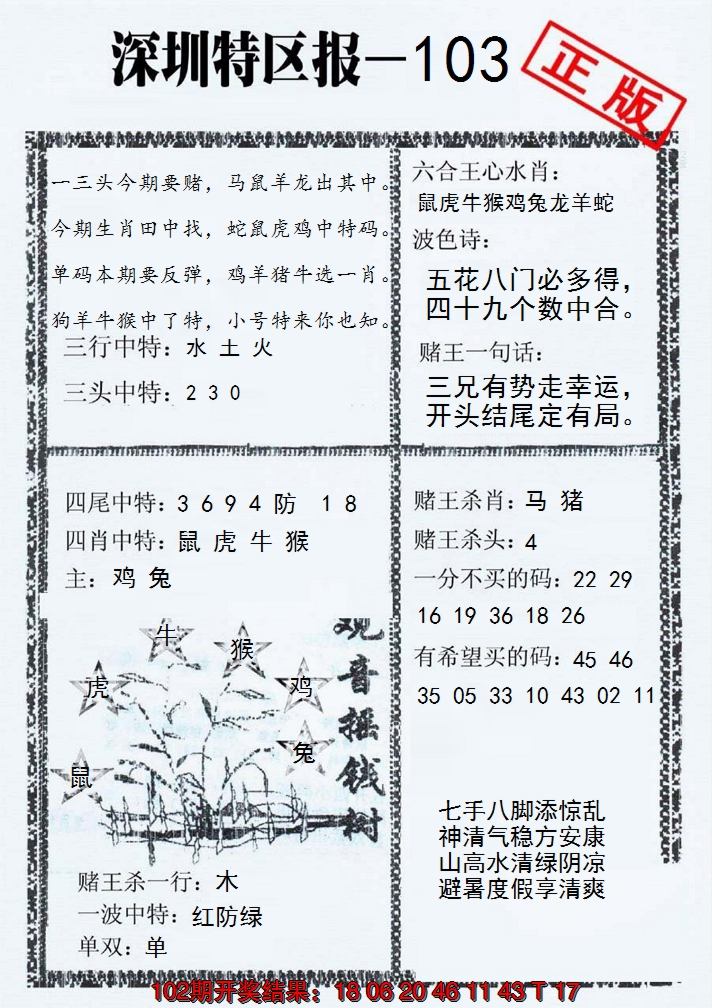 深圳特区报—103
正版
一三头今期要赌，马鼠羊龙出其中。
今期生肖田中找，蛇鼠虎鸡中特码。
单码本期要反弹，鸡羊猪牛选一肖。
狗羊牛猴中了特，小号特来你也知。
三行中特：水 土 火
三头中特：2 3 0
六合王心水肖：
鼠虎牛猴鸡兔龙羊蛇
波色诗：
五花八门必多得，
四十九个数中合。
赌王一句话：
三兄有势走幸运，
开头结尾定有局。
四尾中特：3 6 9 4 防 1 8
四肖中特：鼠 虎 牛 猴
主：鸡 兔
牛
猴
虎
鸡
兔
鼠
观音摇钱树
赌王杀一行：木
一波中特：红防绿
单双：单
赌王杀肖：马 猪
赌王杀头：4
一分不买的码：22 29
16 19 36 18 26
有希望买的码：45 46
35 05 33 10 43 02 11
七手八脚添惊乱
神清气稳方安康
山高水清绿阴凉
避暑度假享清爽
102期开奖结果：18 06 20 46 11 43 T 17